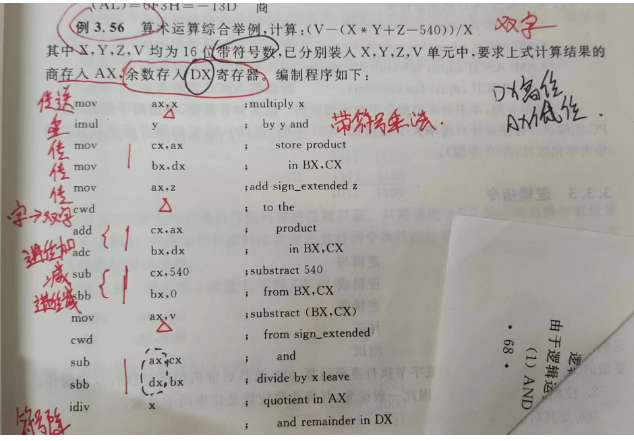 (AL)=6F3H=-13D 商
例 3.56 算术运算综合举例,计算:(V-(X*Y+Z-540))/X 双字
其中 X,Y,Z,V 均为 16 位带符号数,已分别装入 X,Y,Z,V 单元中,要求上式计算结果的
商存入 AX,余数存入 DX 寄存器。编制程序如下: DX高位
AX低位
传送 mov ax,x ;multiply x
imul ; by y and 带符号乘法.
传 mov cx,ax ; store product
传 mov bx,dx ; in BX,CX
传 mov ax,z ;add sign_extended z
字→双字 cwd ; to the
add cx,ax ; product
进位加 adc bx,dx ; in BX,CX
减 sub cx,540 ;substract 540
进位减 sbb bx,0 ; from BX,CX
mov ax,v ;substract (BX,CX)
cwd ; from sign_extended
sub ax,cx ; and
sbb dx,bx ; divide by x leave
符号除 idiv x ; quotient in AX
; and remainder in DX
逻
由于逻辑运
(1) AND
• 68 •
3.3.3 逻辑指令